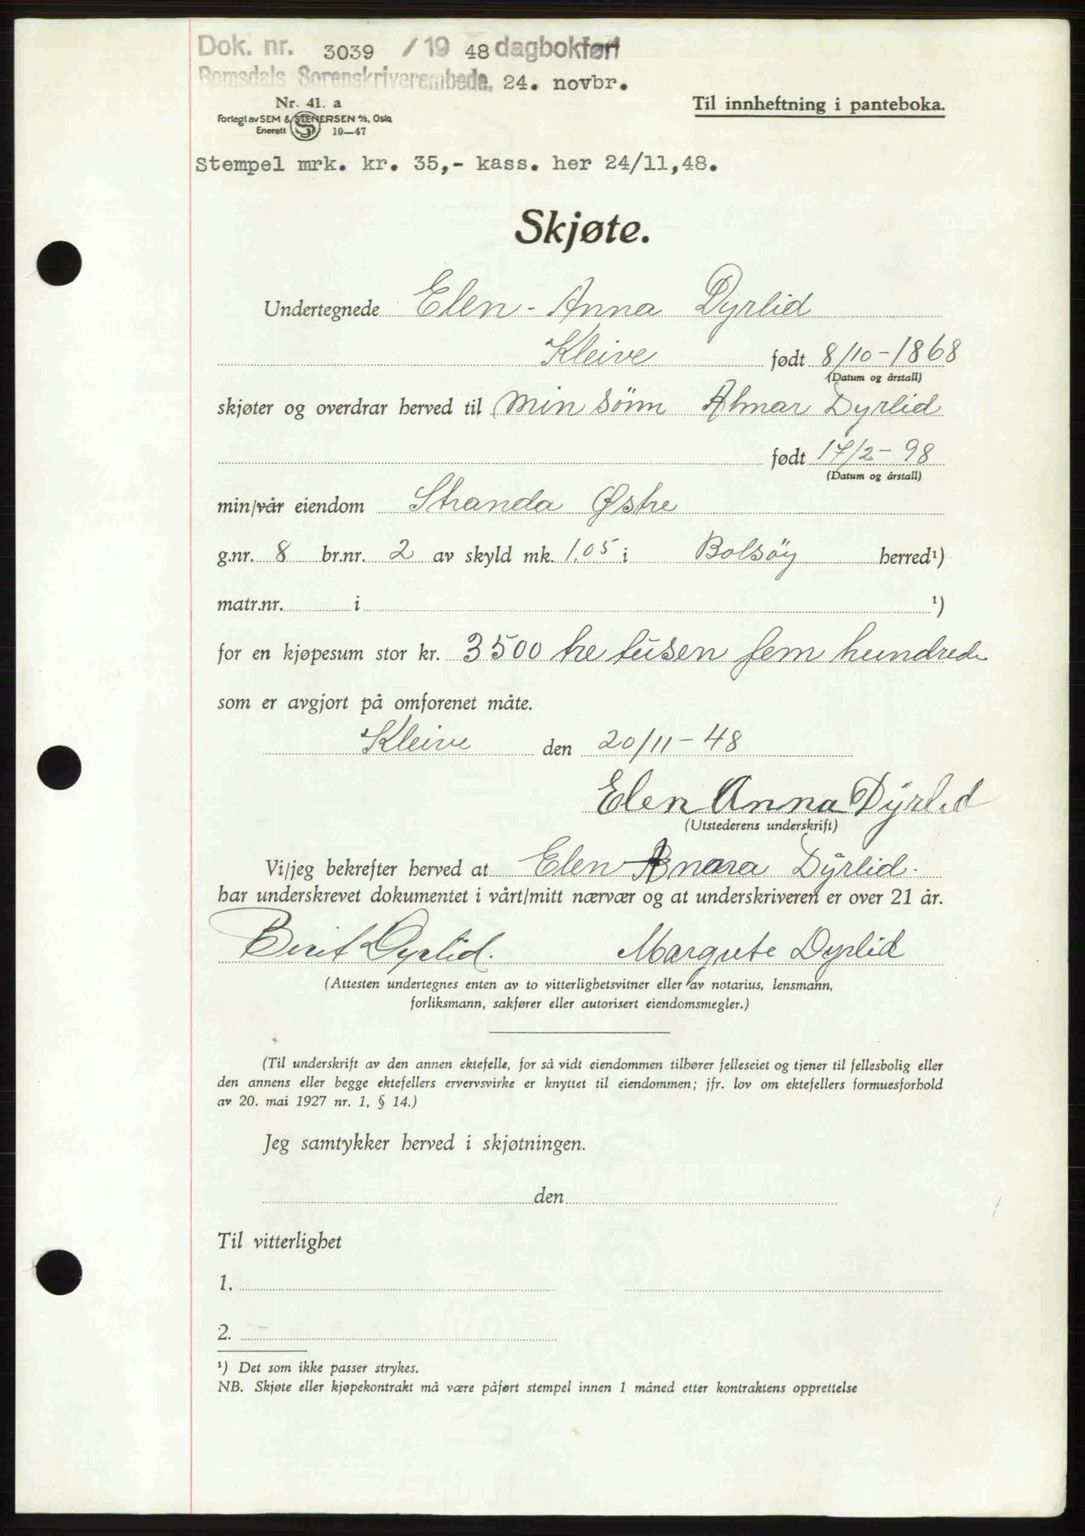 Dok. nr. 3039 / 19 48 dagbokført
Romsdals Sorenskriverembede, 24. novbr.
Nr. 41. a
Forlagt av SEM & STENERSEN A/S, Oslo
Enerett S 10—47
Til innheftning i panteboka.
Stempel mrk. kr. 35,- kass. her 24/11,48.
Skjøte.
Undertegnede Elen - Anna Dyrlid
Kleive født 8/10-1868
(Datum og årstall)
skjøter og overdrar herved til min sönn Almar Dyrlid
født 17/2-98
(Datum og årstall)
min/vår eiendom Stranda Østre
g.nr. 8 br.nr. 2 av skyld mk. 1.05 i Bolsöy herred¹)
matr.nr. i ¹)
for en kjøpesum stor kr. 3500 tre tusen fem hundrede
som er avgjort på omforenet måte.
Kleive den 20/11-48
Elen Anna Dyrlid
(Utstederens underskrift)
Vi/jeg bekrefter herved at Elen Anna Dyrlid.
har underskrevet dokumentet i vårt/mitt nærvær og at underskriveren er over 21 år.
Berit Dyrlid. Margrete Dyrlid
(Attesten undertegnes enten av to vitterlighetsvitner eller av notarius, lensmann,
forliksmann, sakfører eller autorisert eiendomsmegler.)
(Til underskrift av den annen ektefelle, for så vidt eiendommen tilhører felleseiet og tjener til fellesbolig eller
den annens eller begge ektefellers ervervsvirke er knyttet til eiendommen; jfr. lov om ektefellers formuesforhold
av 20. mai 1927 nr. 1, § 14.)
Jeg samtykker herved i skjøtningen.
den
Til vitterlighet
1.
2.
¹) Det som ikke passer strykes.
NB. Skjøte eller kjøpekontrakt må være påført stempel innen 1 måned etter kontraktens opprettelse